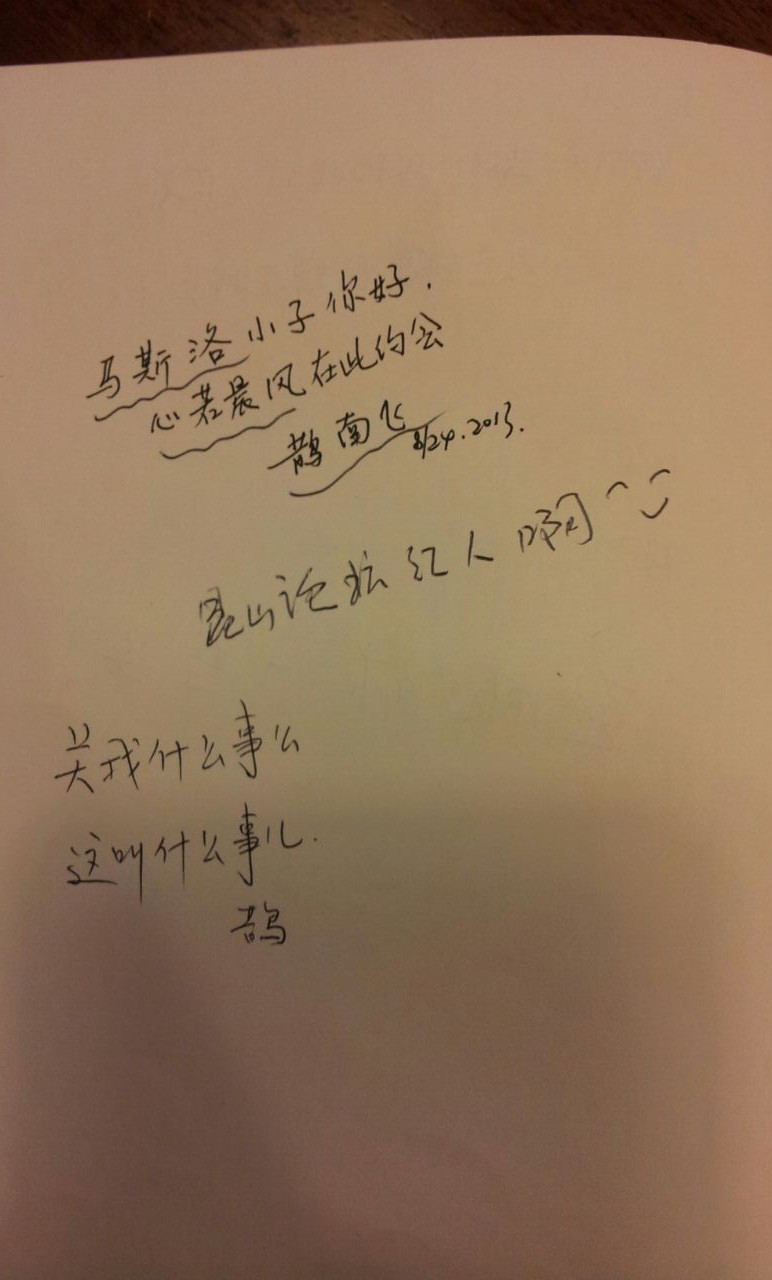 马斯洛小子你好.
心若晨风在此约会
鹊南飞 8/24.2013.
昆山论坛红人啊
关我什么事么
这叫什么事儿.
鹊